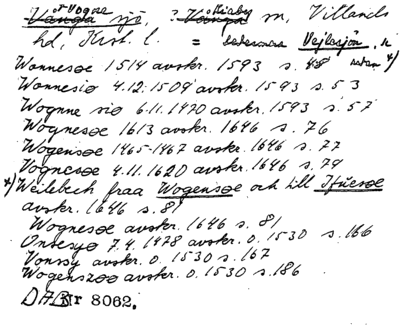 el. Vogna Kiaby
Vånga sjö, i Vånga sn, Villands
hd, Krist. l. = sedermera Vejlesjön, n
Wonnesøe 1514 avskr. 1593 s. 48 sedan x)
Wonnesiø 4.12.1509 avskr. 1593 s. 53
Wognne siø 6.11.1470 avskr. 1593 s. 57
Wognesøe 1613 avskr. 1646 s. 76
Wogensøe 1465-1467 avskr. 1646 s. 77
Vognesøe 4.11.1620 avskr. 1646 s. 79
x) Weilebech fraa Wogensøe och till Ifüesøe
avskr. 1646 s. 81
Wognesøe avskr. 1646 s. 81
Onsesyø 7.4.1478 avskr. o. 1530 s. 166
Vonssy avskr. o. 1530 s. 167
Wogenszøø avskr. o. 1530 s. 186
DAB Nr 8062.